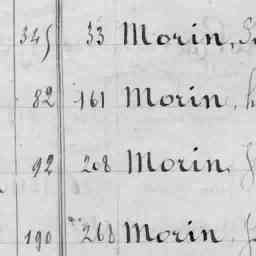 345 33 Morin,
82 161 Morin,
92 208 Morin,
190 268 Morin,